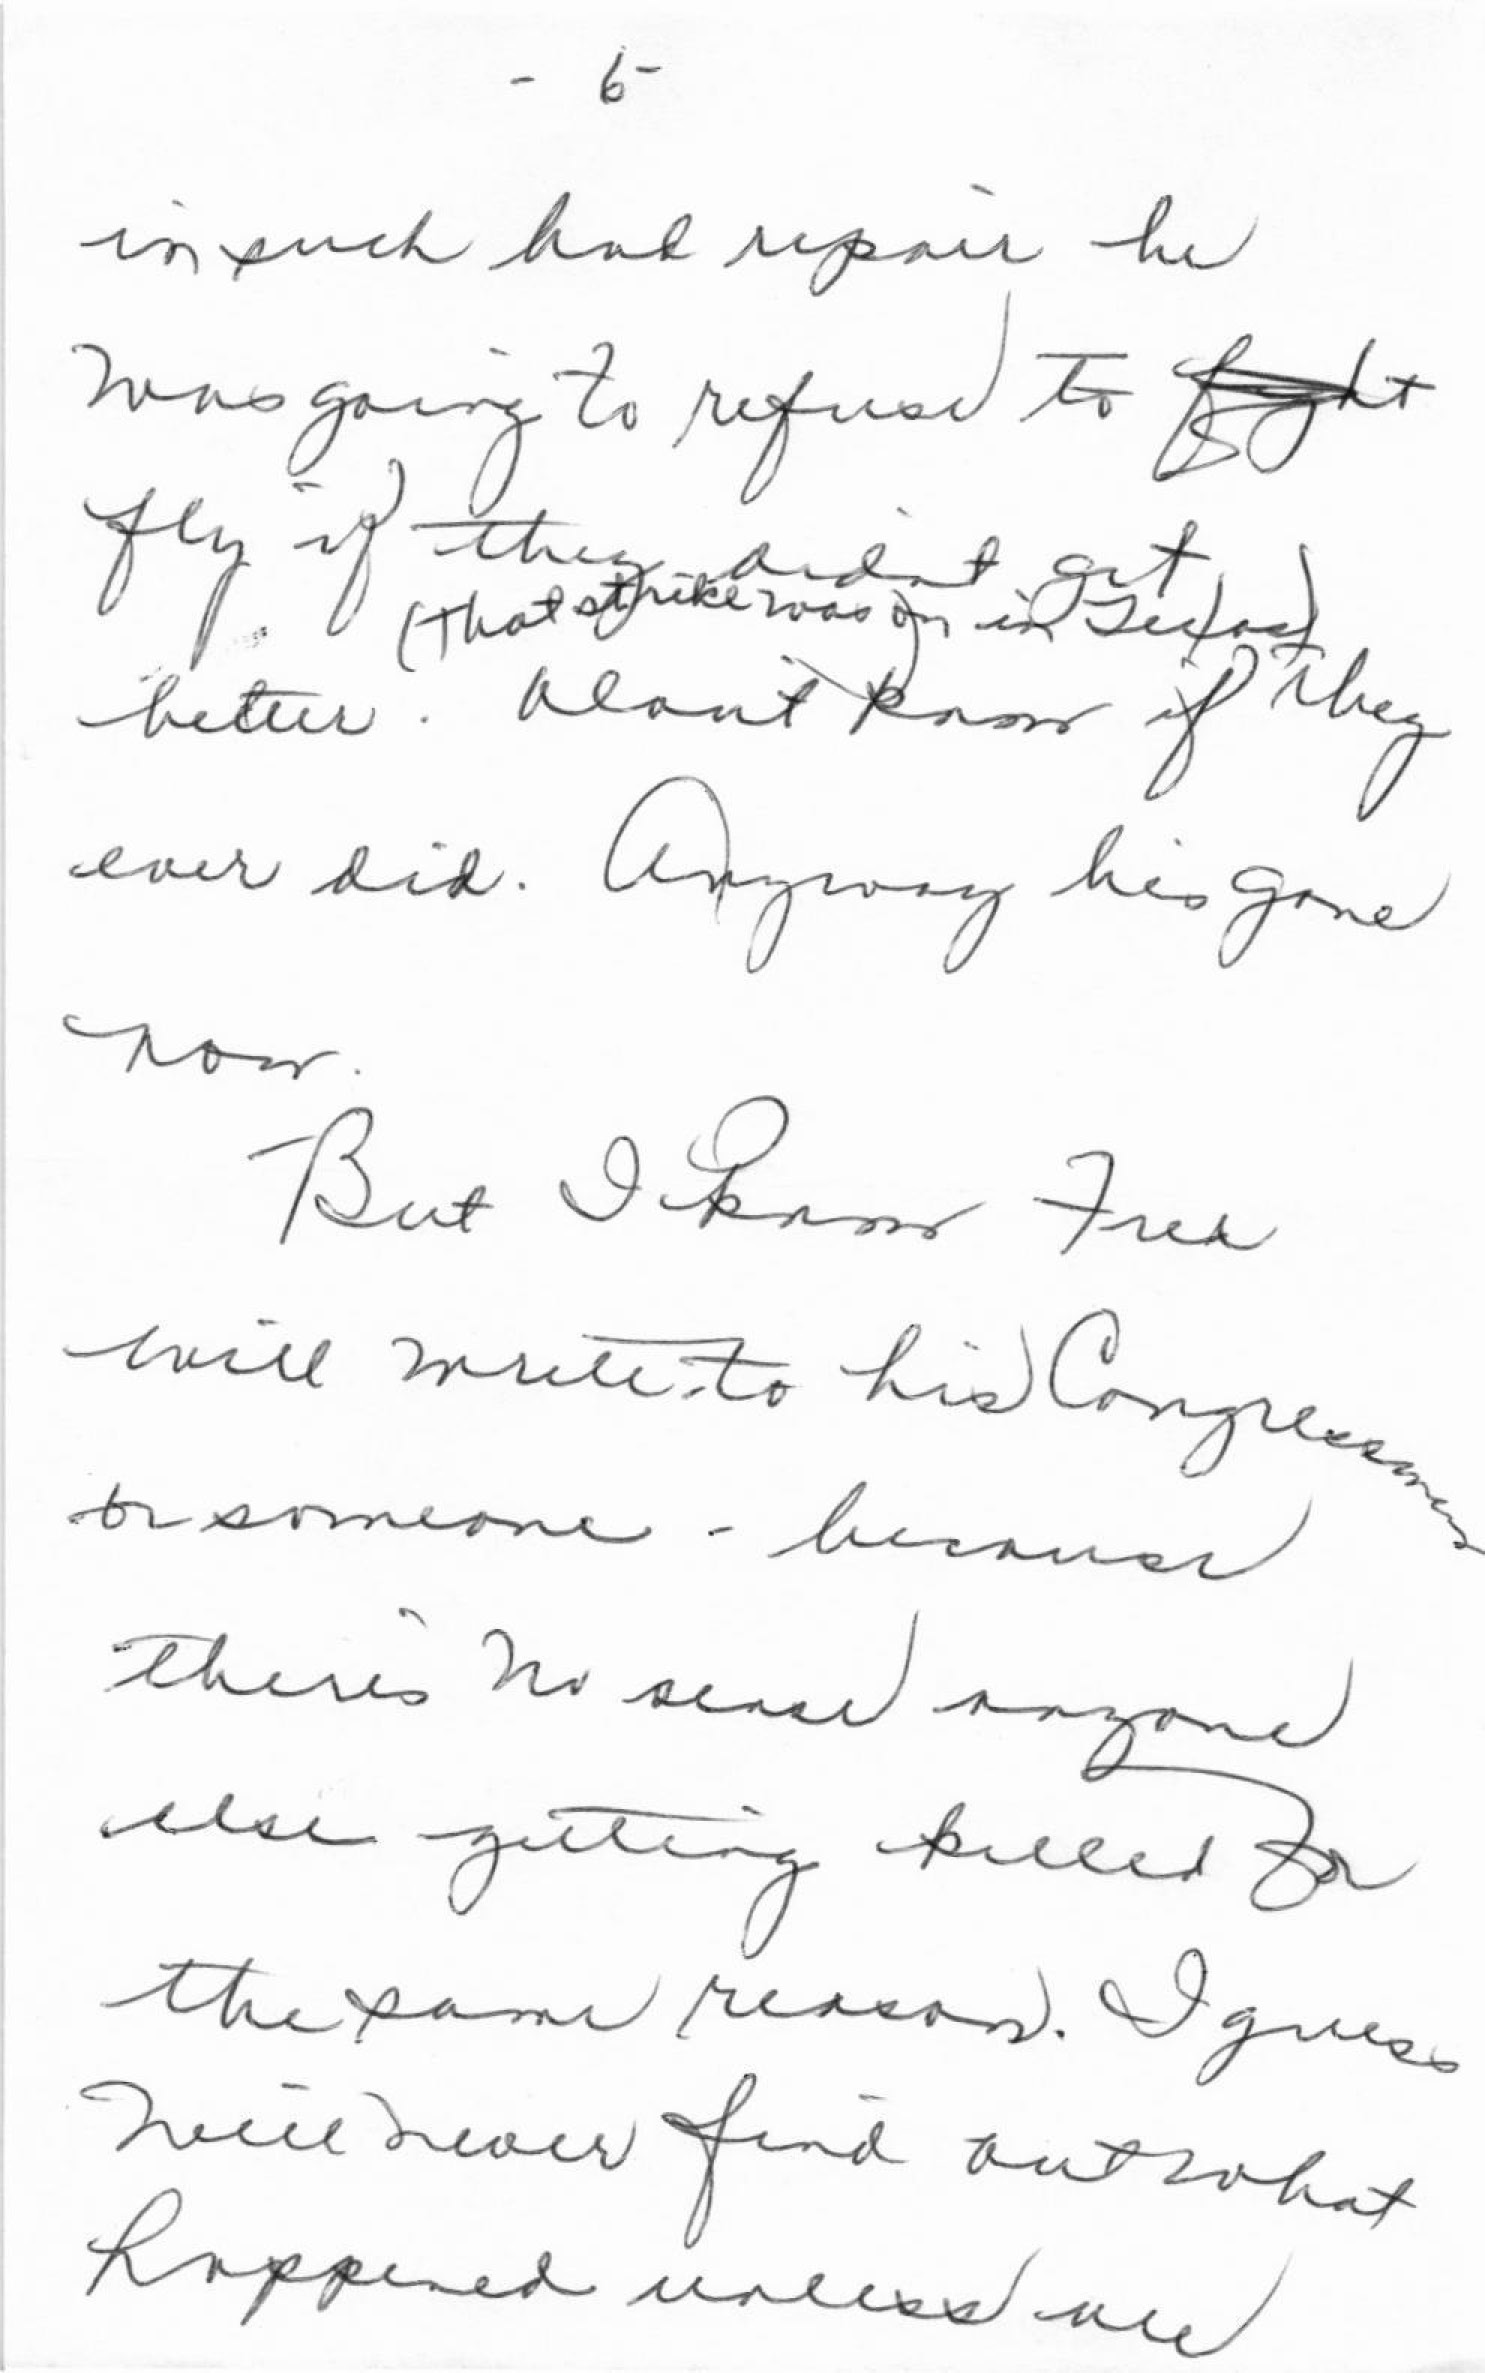 - 6 -
in such bad repair he
was going to refuse to fight
fly if they didn't get
(that strike was on in Texas)
better. don't know if they
ever did. Anyway his gone
now.
But I know Fred
will write to his Congressmen
or someone - because
there's no sense anyone
else getting killed for
the same reason. I guess
we'll never find out what
happened unless we